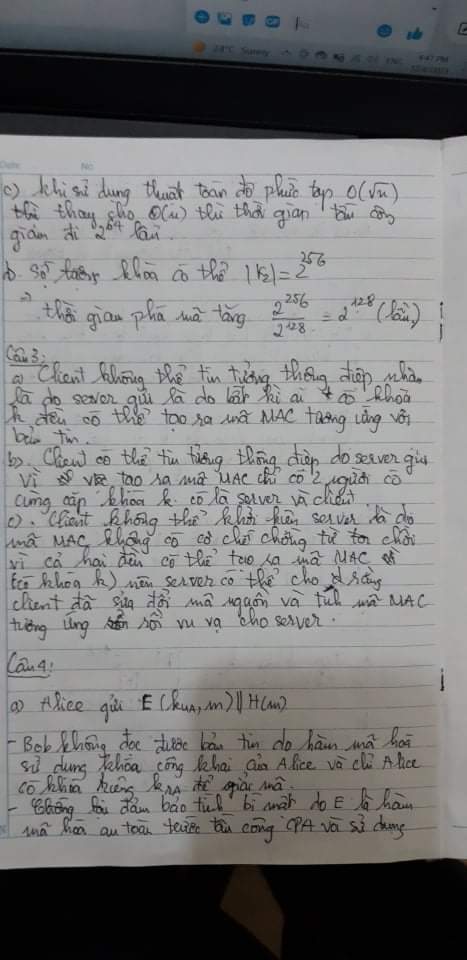 24°C Sunny
ENG
4:47 PM
Date
No
c) Khi sử dụng thuật toán độ phức tạp O(√n)
thì thay cho O(n) thì thời gian tấn công
giảm đi 2^64 lần.
d. Số lượng khoá có thể |K2| = 2^256
⇒ thời gian phá mã tăng 2^256/2^128 = 2^128 (lần)
Câu 3:
a) Client không thể tin tưởng thông điệp nhận
là do server gửi là do bất kì ai có khoá
k đều có thể tạo ra mã MAC tương ứng với
bản tin.
b). Client có thể tin tưởng thông điệp do server gửi
vì tạo ra mã MAC chỉ có 2 người có
cùng cặp khoá k. có là server và client
c). Client không thể khởi kiện server là do
mã MAC không có cơ chế chống từ chối
vì cả hai đều có thể tạo ra mã MAC
(có khoá k) nên server có thể cho rằng
client đã sửa đổi mã nguồn và tính mã MAC
tương ứng rồi vu vạ cho server.
Câu 4:
a) Alice gửi E(kUA, m) || H(m)
- Bob không đọc được bản tin do hàm mã hoá
sử dụng khóa công khai của Alice và chỉ Alice
có khóa riêng kRA để giải mã.
- Chống lại đảm bảo tính bí mật do E là hàm
mã hoá an toàn trước tấn công CPA và sử dụng